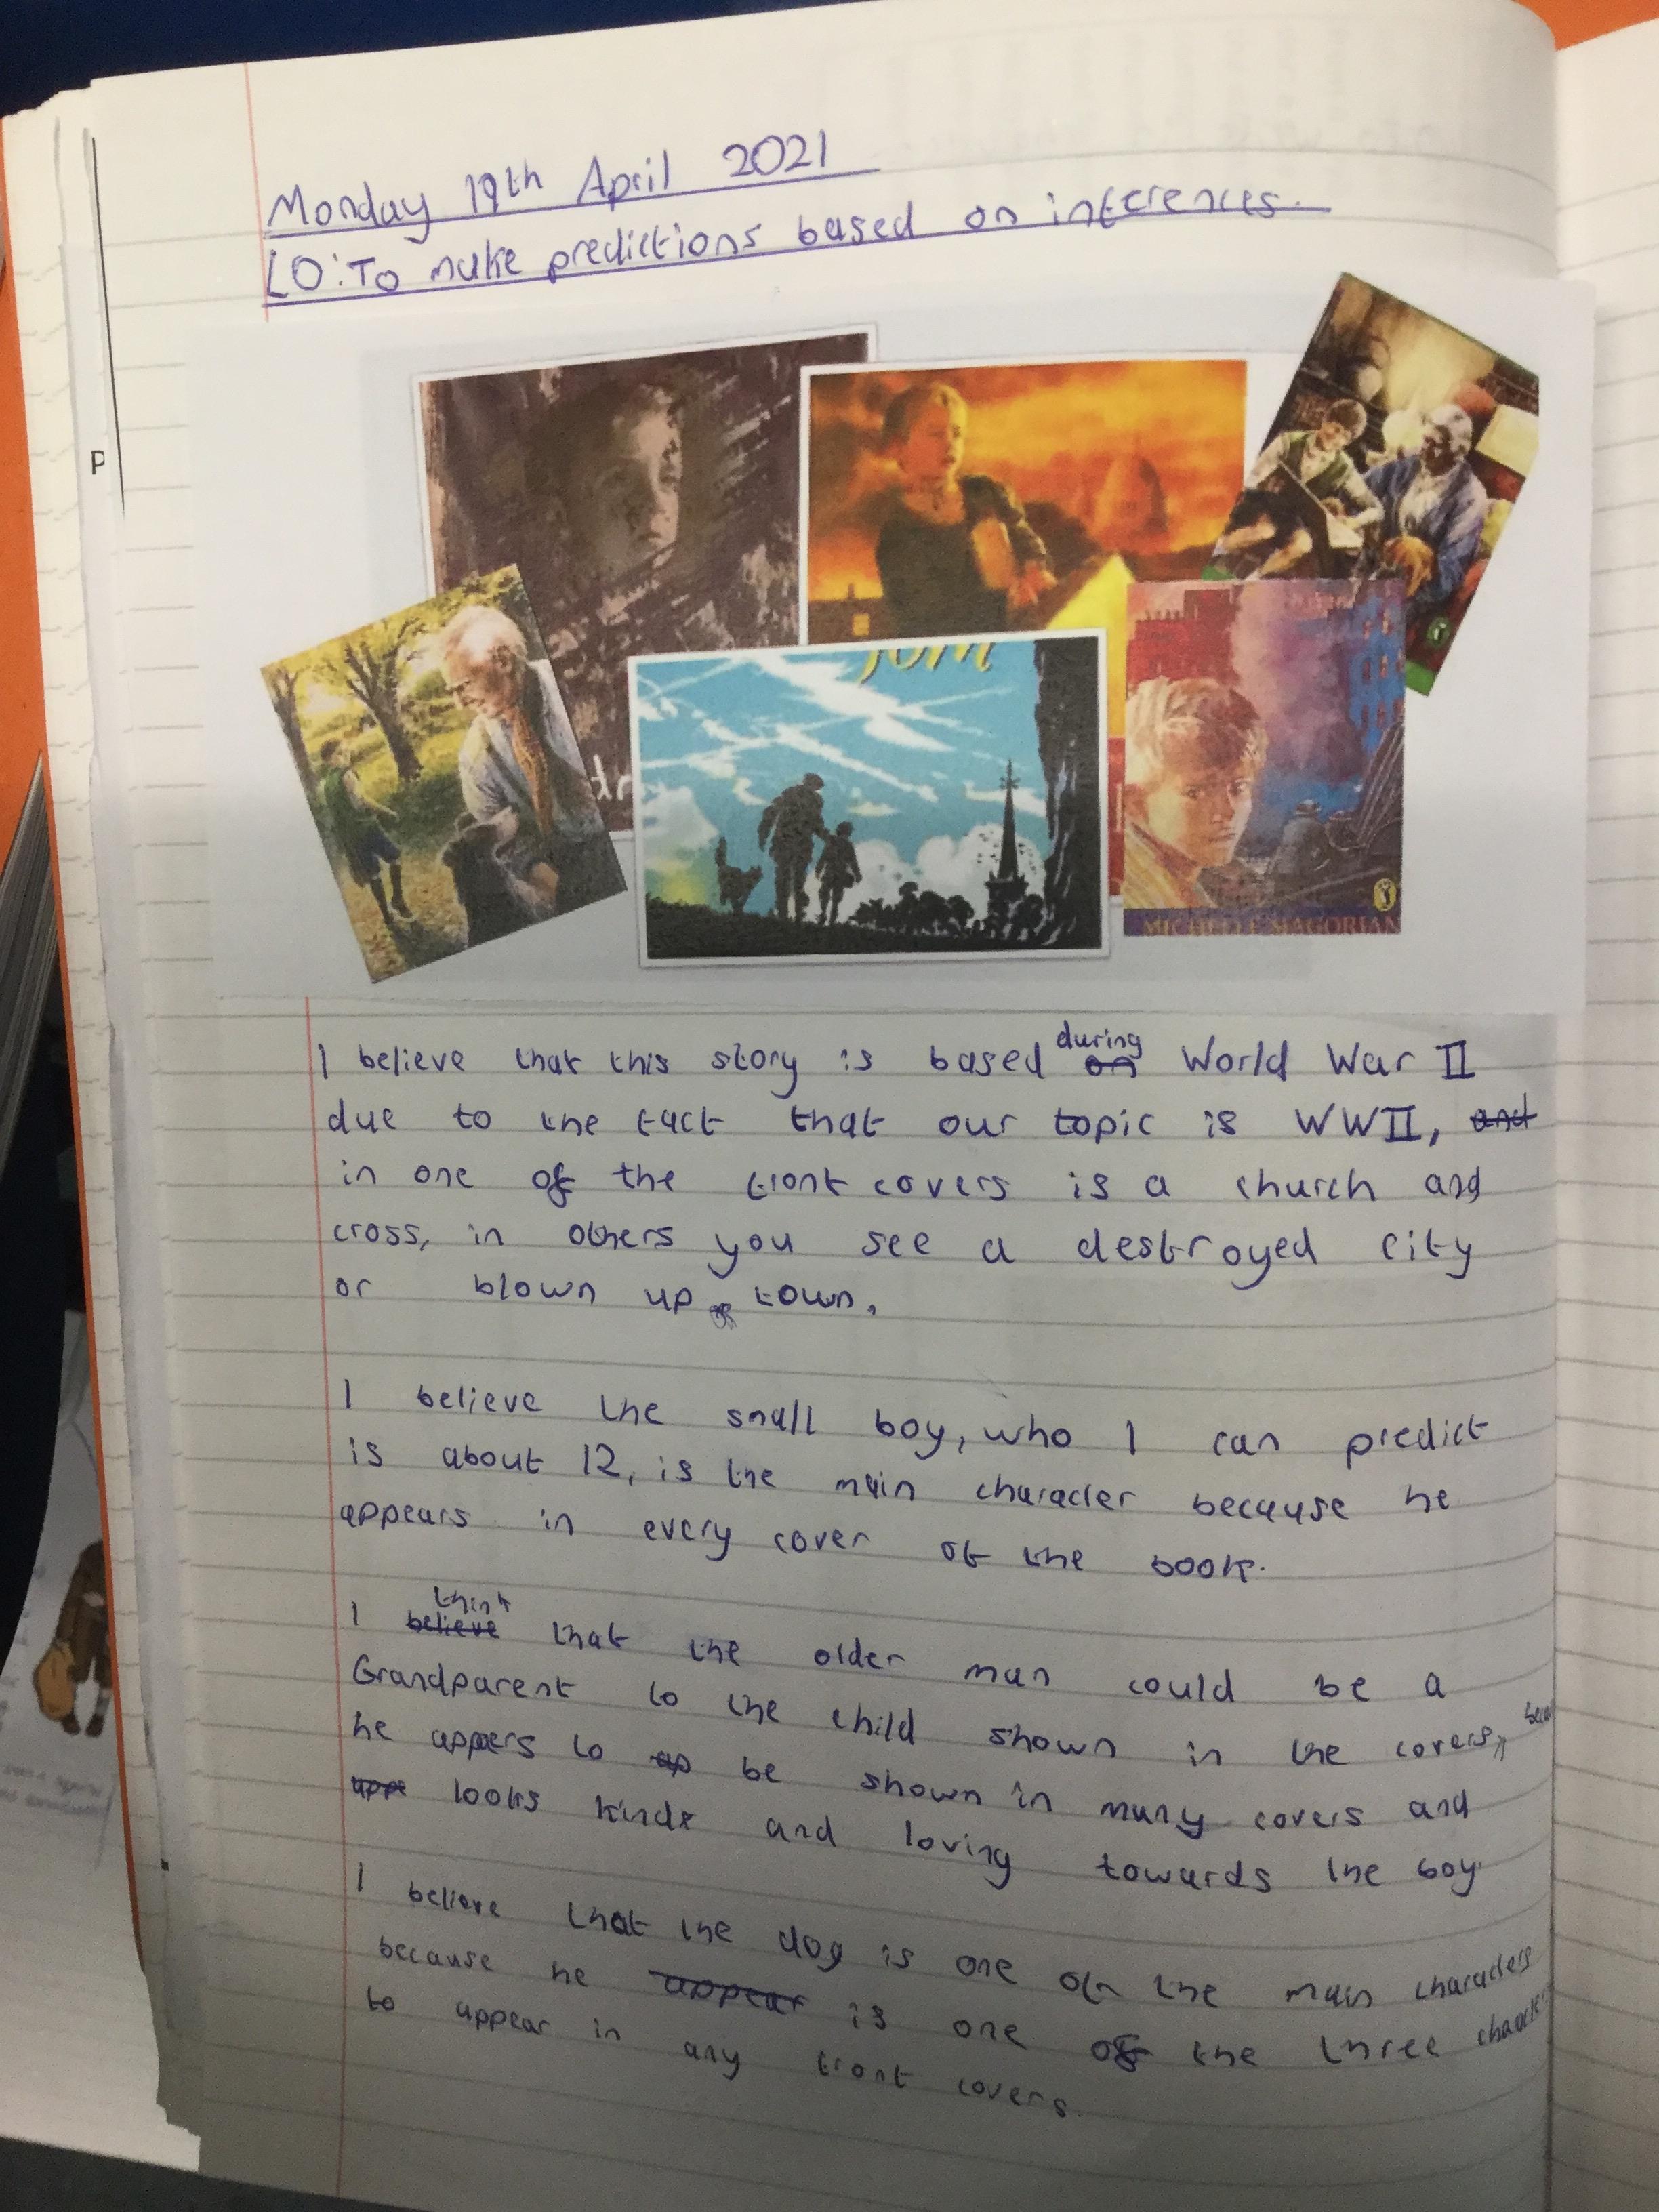 Monday 19th April 2021
LO: To make predictions based on inferences.
P
Tom
th
MICHELLE MAGORIAN
I believe that this story is based on during World War II
due to the fact that our topic is WWII, and
in one of the front covers is a church and
cross, in others you see a destroyed city
or blown up town.
I believe the small boy, who I can predict
is about 12, is the main character because he
appears in every cover of the book.
I believe think that the older man could be a
Grandparent to the child shown in the covers, becau
he appers to ap be shown in many covers and
appe looks kind and loving towards the boy
I believe that the dog is one of the main characters
because he appear is one of the three character
to appear in any front covers.